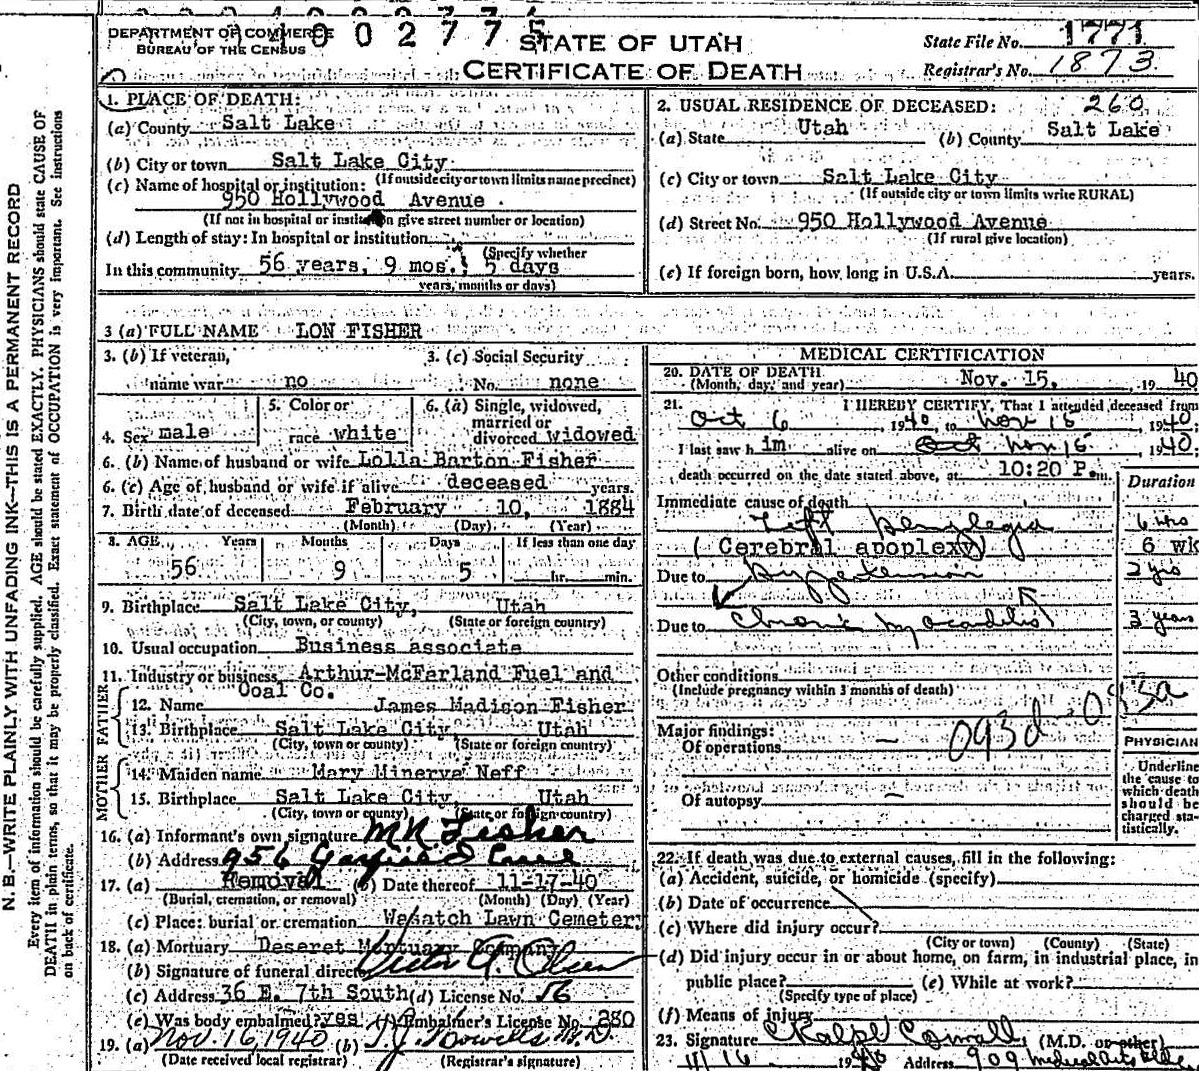 DEPARTMENT OF COMMERCE
BUREAU OF THE CENSUS
STATE OF UTAH
CERTIFICATE OF DEATH
State File No. 1771
Registrar's No. 1873
1. PLACE OF DEATH:
(a) County Salt Lake
(b) City or town Salt Lake City
(If outside city or town limits name precinct)
(c) Name of hospital or institution:
950 Hollywood Avenue
(If not in hospital or institution give street number or location)
(d) Length of stay: In hospital or institution
(Specify whether
In this community 56 years, 9 mos., 5 days
years, months or days)
2. USUAL RESIDENCE OF DECEASED: 260
(a) State Utah (b) County Salt Lake
(c) City or town Salt Lake City
(If outside city or town limits write RURAL)
(d) Street No. 950 Hollywood Avenue
(If rural give location)
(e) If foreign born, how long in U.S.A. years.
3 (a) FULL NAME LON FISHER
3. (b) If veteran,
name war no
3. (c) Social Security
No. none
4. Sex male
5. Color or
race white
6. (a) Single, widowed,
married or
divorced widowed
6. (b) Name of husband or wife Lolla Barton Fisher
6. (c) Age of husband or wife if alive deceased years.
7. Birth date of deceased February 10, 1884
(Month) (Day) (Year)
8. AGE Years Months Days If less than one day
56 9 5 hr. min.
9. Birthplace Salt Lake City, Utah
(City, town, or county) (State or foreign country)
10. Usual occupation Business associate
11. Industry or business Arthur-McFarland Fuel and
Coal Co.
FATHER
12. Name James Madison Fisher
13. Birthplace Salt Lake City Utah
(City, town or county) (State or foreign country)
MOTHER
14. Maiden name Mary Minerva Neff
15. Birthplace Salt Lake City, Utah
(City, town or county) (State or foreign country)
16. (a) Informant's own signature M N Fisher
(b) Address 956 Garfield Ave
17. (a) Removal (b) Date thereof 11-17-40
(Burial, cremation, or removal) (Month) (Day) (Year)
(c) Place: burial or cremation Wasatch Lawn Cemetery
18. (a) Mortuary Deseret Mortuary Company
(b) Signature of funeral director Victor A. Olsen
(c) Address 36 E. 7th South (d) License No. 56
(e) Was body embalmed? yes (f) Embalmer's License No. 280
19. (a) Nov 16, 1940 (b) T. J. Howells M.D.
(Date received local registrar) (Registrar's signature)
MEDICAL CERTIFICATION
20. DATE OF DEATH
(Month, day, and year) Nov. 15, 1940
21. I HEREBY CERTIFY, That I attended deceased from
Oct 6, 1940, to Nov 15, 1940;
I last saw him alive on Oct Nov 15, 1940;
death occurred on the date stated above, at 10:20 P.m.
Duration
Immediate cause of death
Left hemplegia 6 wks
(Cerebral apoplexy) 6 wk
Due to Hypertension 2 yrs
Due to Chronic myocarditis 3 years
Other conditions
(Include pregnancy within 3 months of death)
Major findings:
Of operations —
093d
Of autopsy —
PHYSICIAN
Underline
the cause to
which death
should be
charged sta-
tistically.
22. If death was due to external causes, fill in the following:
(a) Accident, suicide, or homicide (specify)
(b) Date of occurrence
(c) Where did injury occur?
(City or town) (County) (State)
(d) Did injury occur in or about home, on farm, in industrial place, in
public place? (e) While at work?
(Specify type of place)
(f) Means of injury
23. Signature (M.D. or other)
11/16 1940 Address 909 Medical Arts Bldg
N. B.—WRITE PLAINLY WITH UNFADING INK—THIS IS A PERMANENT RECORD
Every item of information should be carefully supplied. AGE should be stated EXACTLY. PHYSICIANS should state CAUSE OF
DEATH in plain terms, so that it may be properly classified. Exact statement of OCCUPATION is very important. See instructions
on back of certificate.